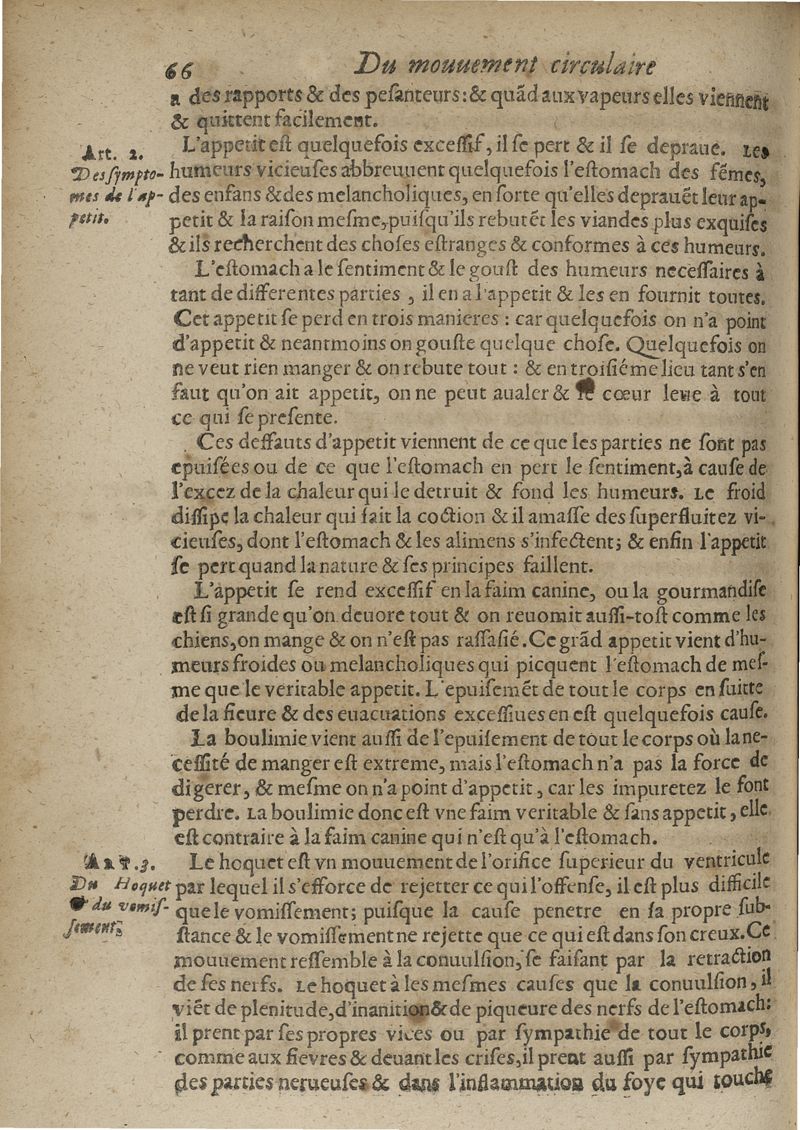 66 Du mouuement circulaire
a des rapports & des pesanteurs: & quãd aux vapeurs elles viennent
& quittent facilement.
Art. 2.
Des sympto-
mes de l'ap-
petit.
L'appetit est quelquefois excessif, il se pert & il se depraue. Les
humeurs vicieuses abbreuuent quelquefois l'estomach des fẽmes,
des enfans & des melancholiques, en sorte qu'elles deprauẽt leur ap-
petit & la raison mesme, puisqu'ils rebutẽt les viandes plus exquises
& ils recherchent des choses estranges & conformes à ces humeurs.
L'estomach a le sentiment & le goust des humeurs necessaires à
tant de differentes parties, il en a l'appetit & les en fournit toutes.
Cet appetit se perd en trois manieres: car quelquefois on n'a point
d'appetit & neantmoins on gouste quelque chose. Quelquefois on
ne veut rien manger & on rebute tout: & en troisiéme lieu tant s'en
faut qu'on ait appetit, on ne peut aualer & le cœur leue à tout
ce qui se presente.
Ces deffauts d'appetit viennent de ce que les parties ne sont pas
epuisées ou de ce que l'estomach en pert le sentiment, à cause de
l'excez de la chaleur qui le detruit & fond les humeurs. Le froid
dissipe la chaleur qui fait la coction & il amasse des superfluitez vi-
cieuses, dont l'estomach & les alimens s'infectent; & enfin l'appetit
se pert quand la nature & ses principes faillent.
L'appetit se rend excessif en la faim canine, ou la gourmandise
est si grande qu'on deuore tout & on reuomit aussi-tost comme les
chiens, on mange & on n'est pas rassasié. Ce grãd appetit vient d'hu-
meurs froides ou melancholiques qui picquent l'estomach de mes-
me que le veritable appetit. L'epuisemẽt de tout le corps en suitte
de la fieure & des euacuations excessiues en est quelquefois cause.
La boulimie vient aussi de l'epuisement de tout le corps où la ne-
cessité de manger est extreme, mais l'estomach n'a pas la force de
digerer, & mesme on n'a point d'appetit, car les impuretez le font
perdre. La boulimie donc est vne faim veritable & sans appetit, elle
est contraire à la faim canine qui n'est qu'à l'estomach.
Art. 3.
Du Hoquet
& du vomis-
sement.
Le hoquet est vn mouuement de l'orifice superieur du ventricule
par lequel il s'efforce de rejetter ce qui l'offense, il est plus difficile
que le vomissement; puisque la cause penetre en sa propre sub-
stance & le vomissement ne rejette que ce qui est dans son creux. Ce
mouuement ressemble à la conuulsion, se faisant par la retraction
de ses nerfs. Le hoquet à les mesmes causes que la conuulsion, il
viẽt de plenitude, d'inanition & de piqueure des nerfs de l'estomach:
il prent par ses propres vices ou par sympathie de tout le corps,
comme aux fievres & deuant les crises, il prent aussi par sympathie
des parties nerueuses & dans l'inflammation du foye qui touche